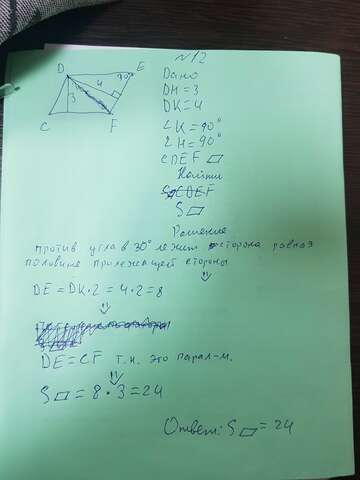 N12
D
E
4
30°
3
C
F
Дано
DH = 3
DK = 4
∠K = 90°
∠H = 90°
CDEF ▱
Найти
S ▱
Решение
против угла в 30° лежит сторона равная
половине прилежащей стороны
DE = DK · 2 = 4 · 2 = 8
DE = CF т.к. это парал-м.
S ▱ = 8 · 3 = 24
Ответ: S ▱ = 24